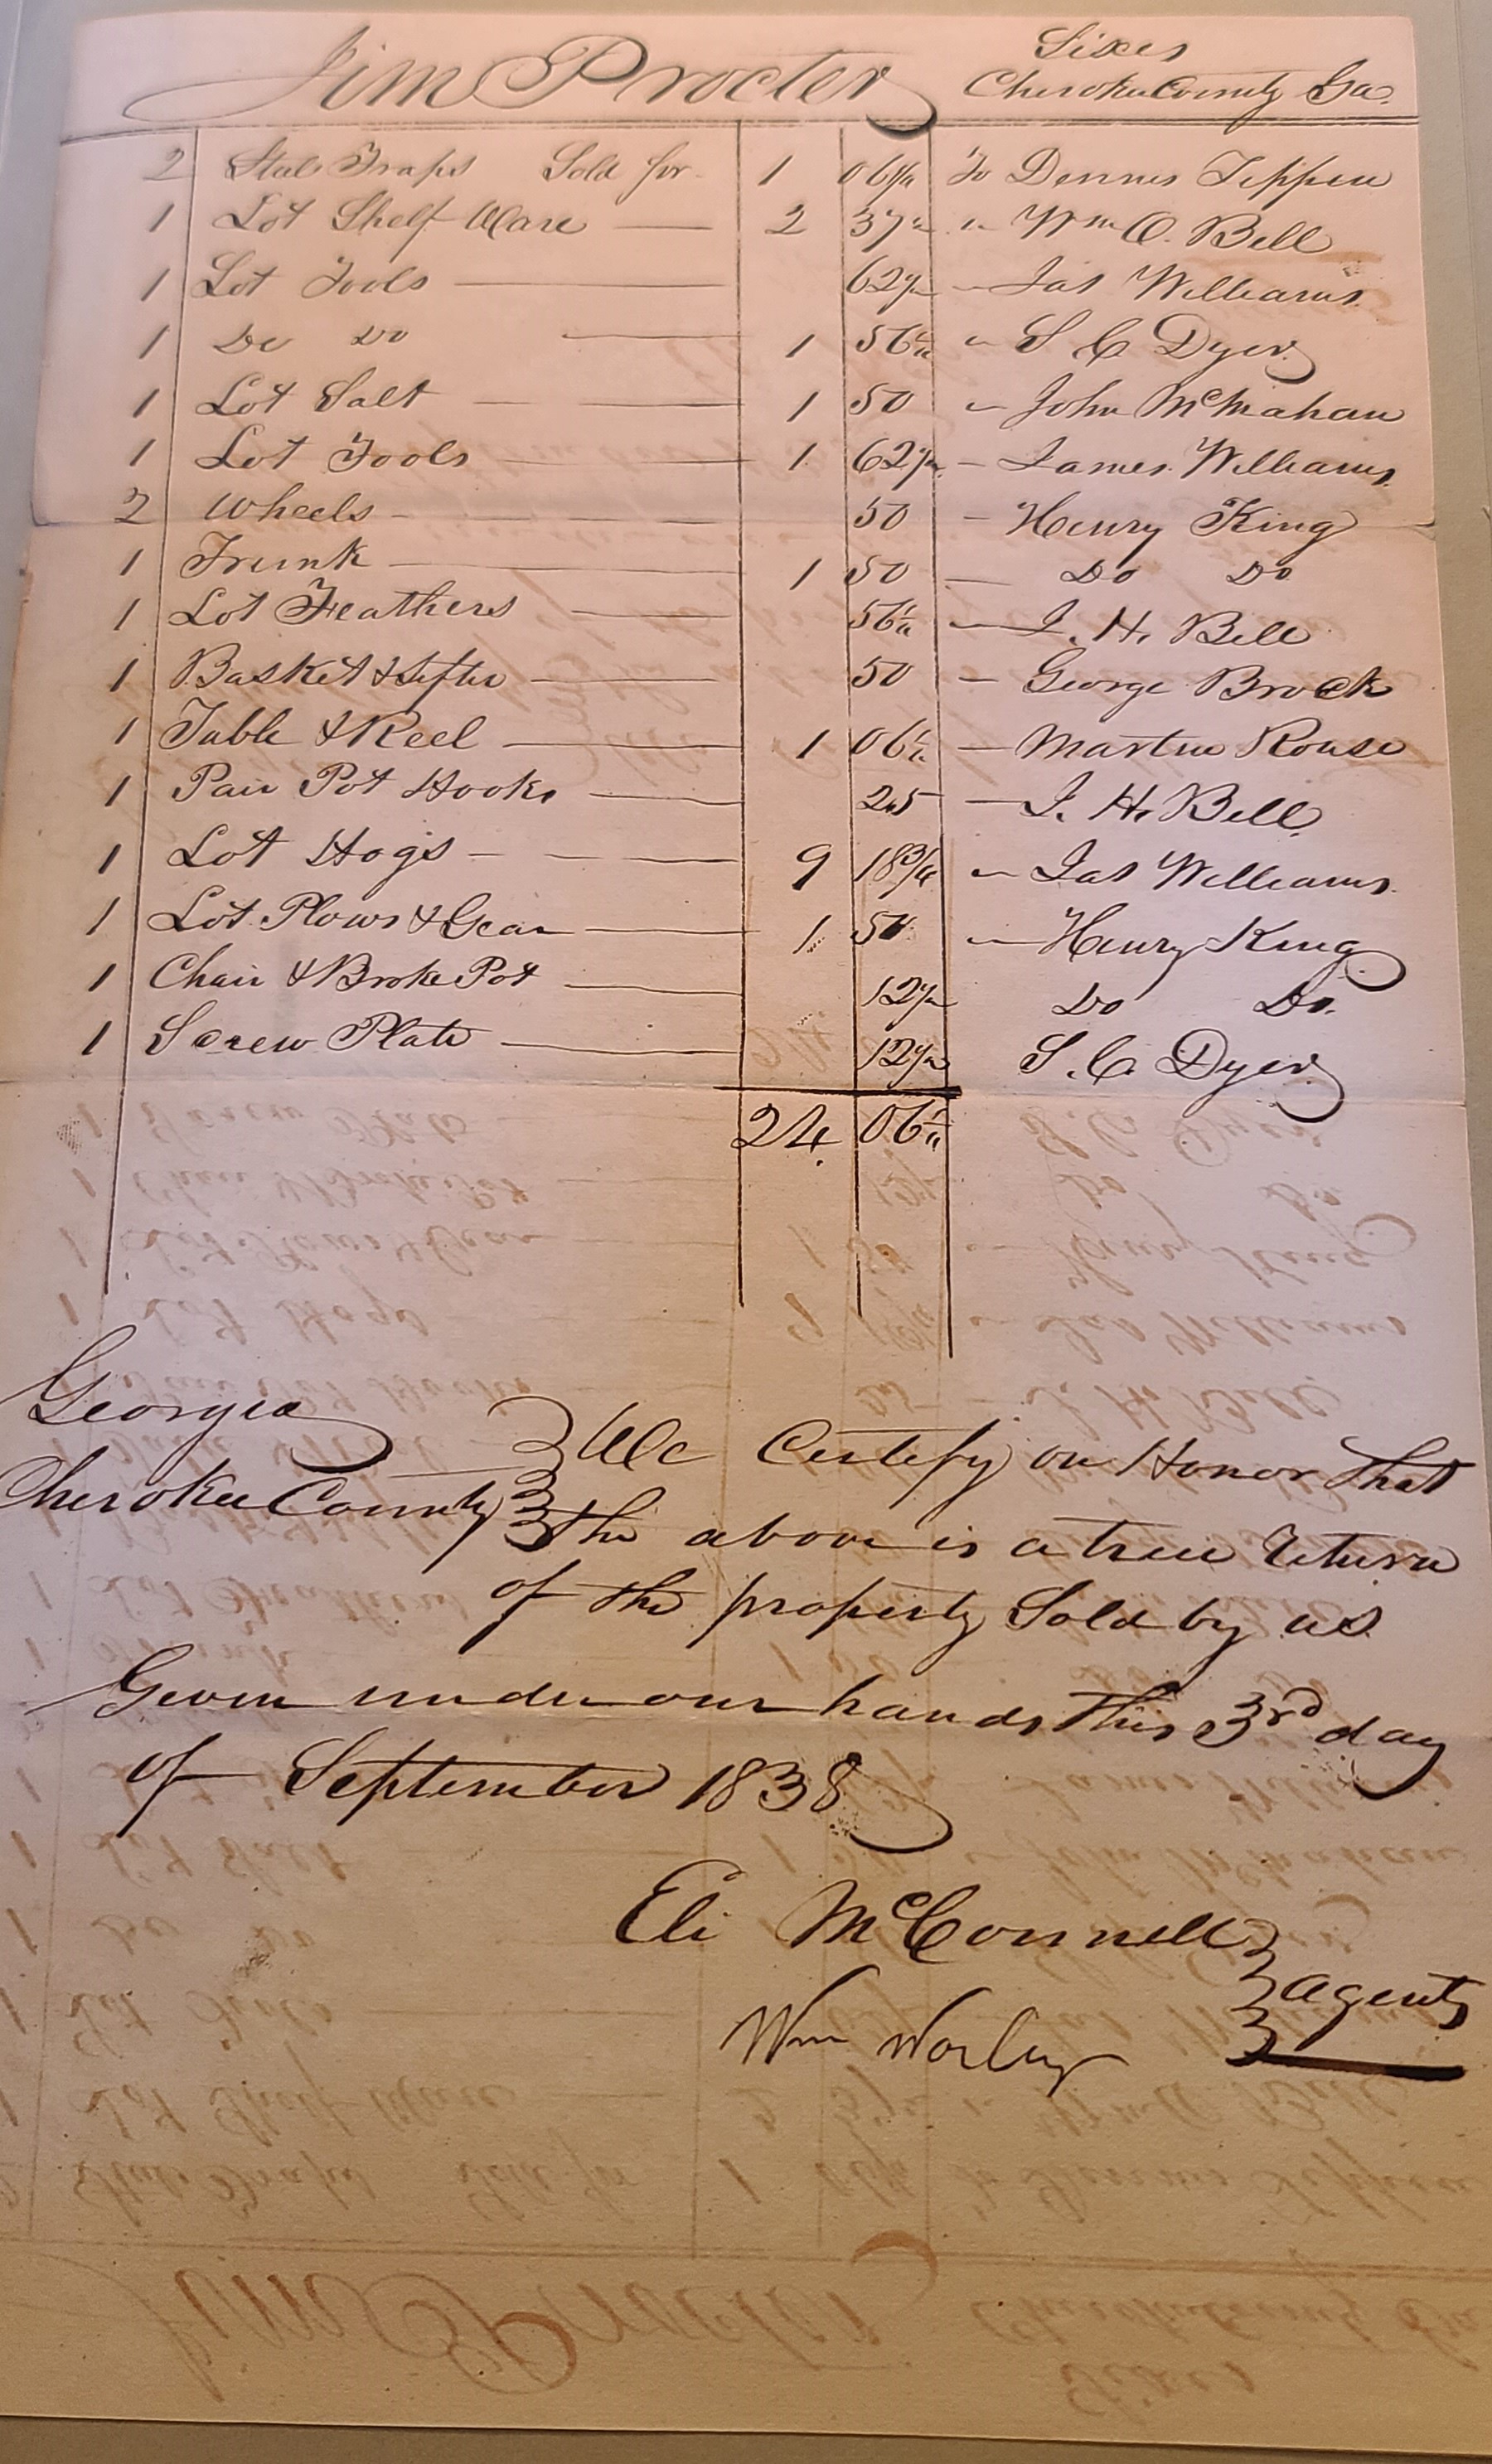 Jim Procter Sixes
Cherokee County Ga.
2 Steel Traps Sold for 1 06 1/4 To Dennis Tippen
1 Lot Shelf Ware 2 37 1/2 " Wm O. Bell
1 Lot Tools 62 1/2 " Jas Williams
1 Do Do 1 56 1/4 " S C Dyer
1 Lot Salt 1 50 " John McMahan
1 Lot Tools 1 62 1/2 - James Williams
2 Wheels 50 - Henry King
1 Trunk 1 50 - Do Do
1 Lot Feathers 56 1/4 - J. H. Bell
1 Basket & Sifter 50 - George Brock
1 Table & Reel 1 06 1/4 - Martin Rouse
1 Pair Pot Hooks 25 - J. H. Bell
1 Lot Hogs 9 18 3/4 " Jas Williams
1 Lot Plows & Gear 1 50 " Henry King
1 Chair & Broke Pot 12 1/2 Do Do.
1 Screw Plate 12 1/2 S. C. Dyer
24 06 1/4
Georgia
Cherokee County } We Certify on Honor that
the above is a true Return
of the property Sold by us
Given under our hands this 3rd day
of September 1838
Eli McConnell
Wm Worley } agents